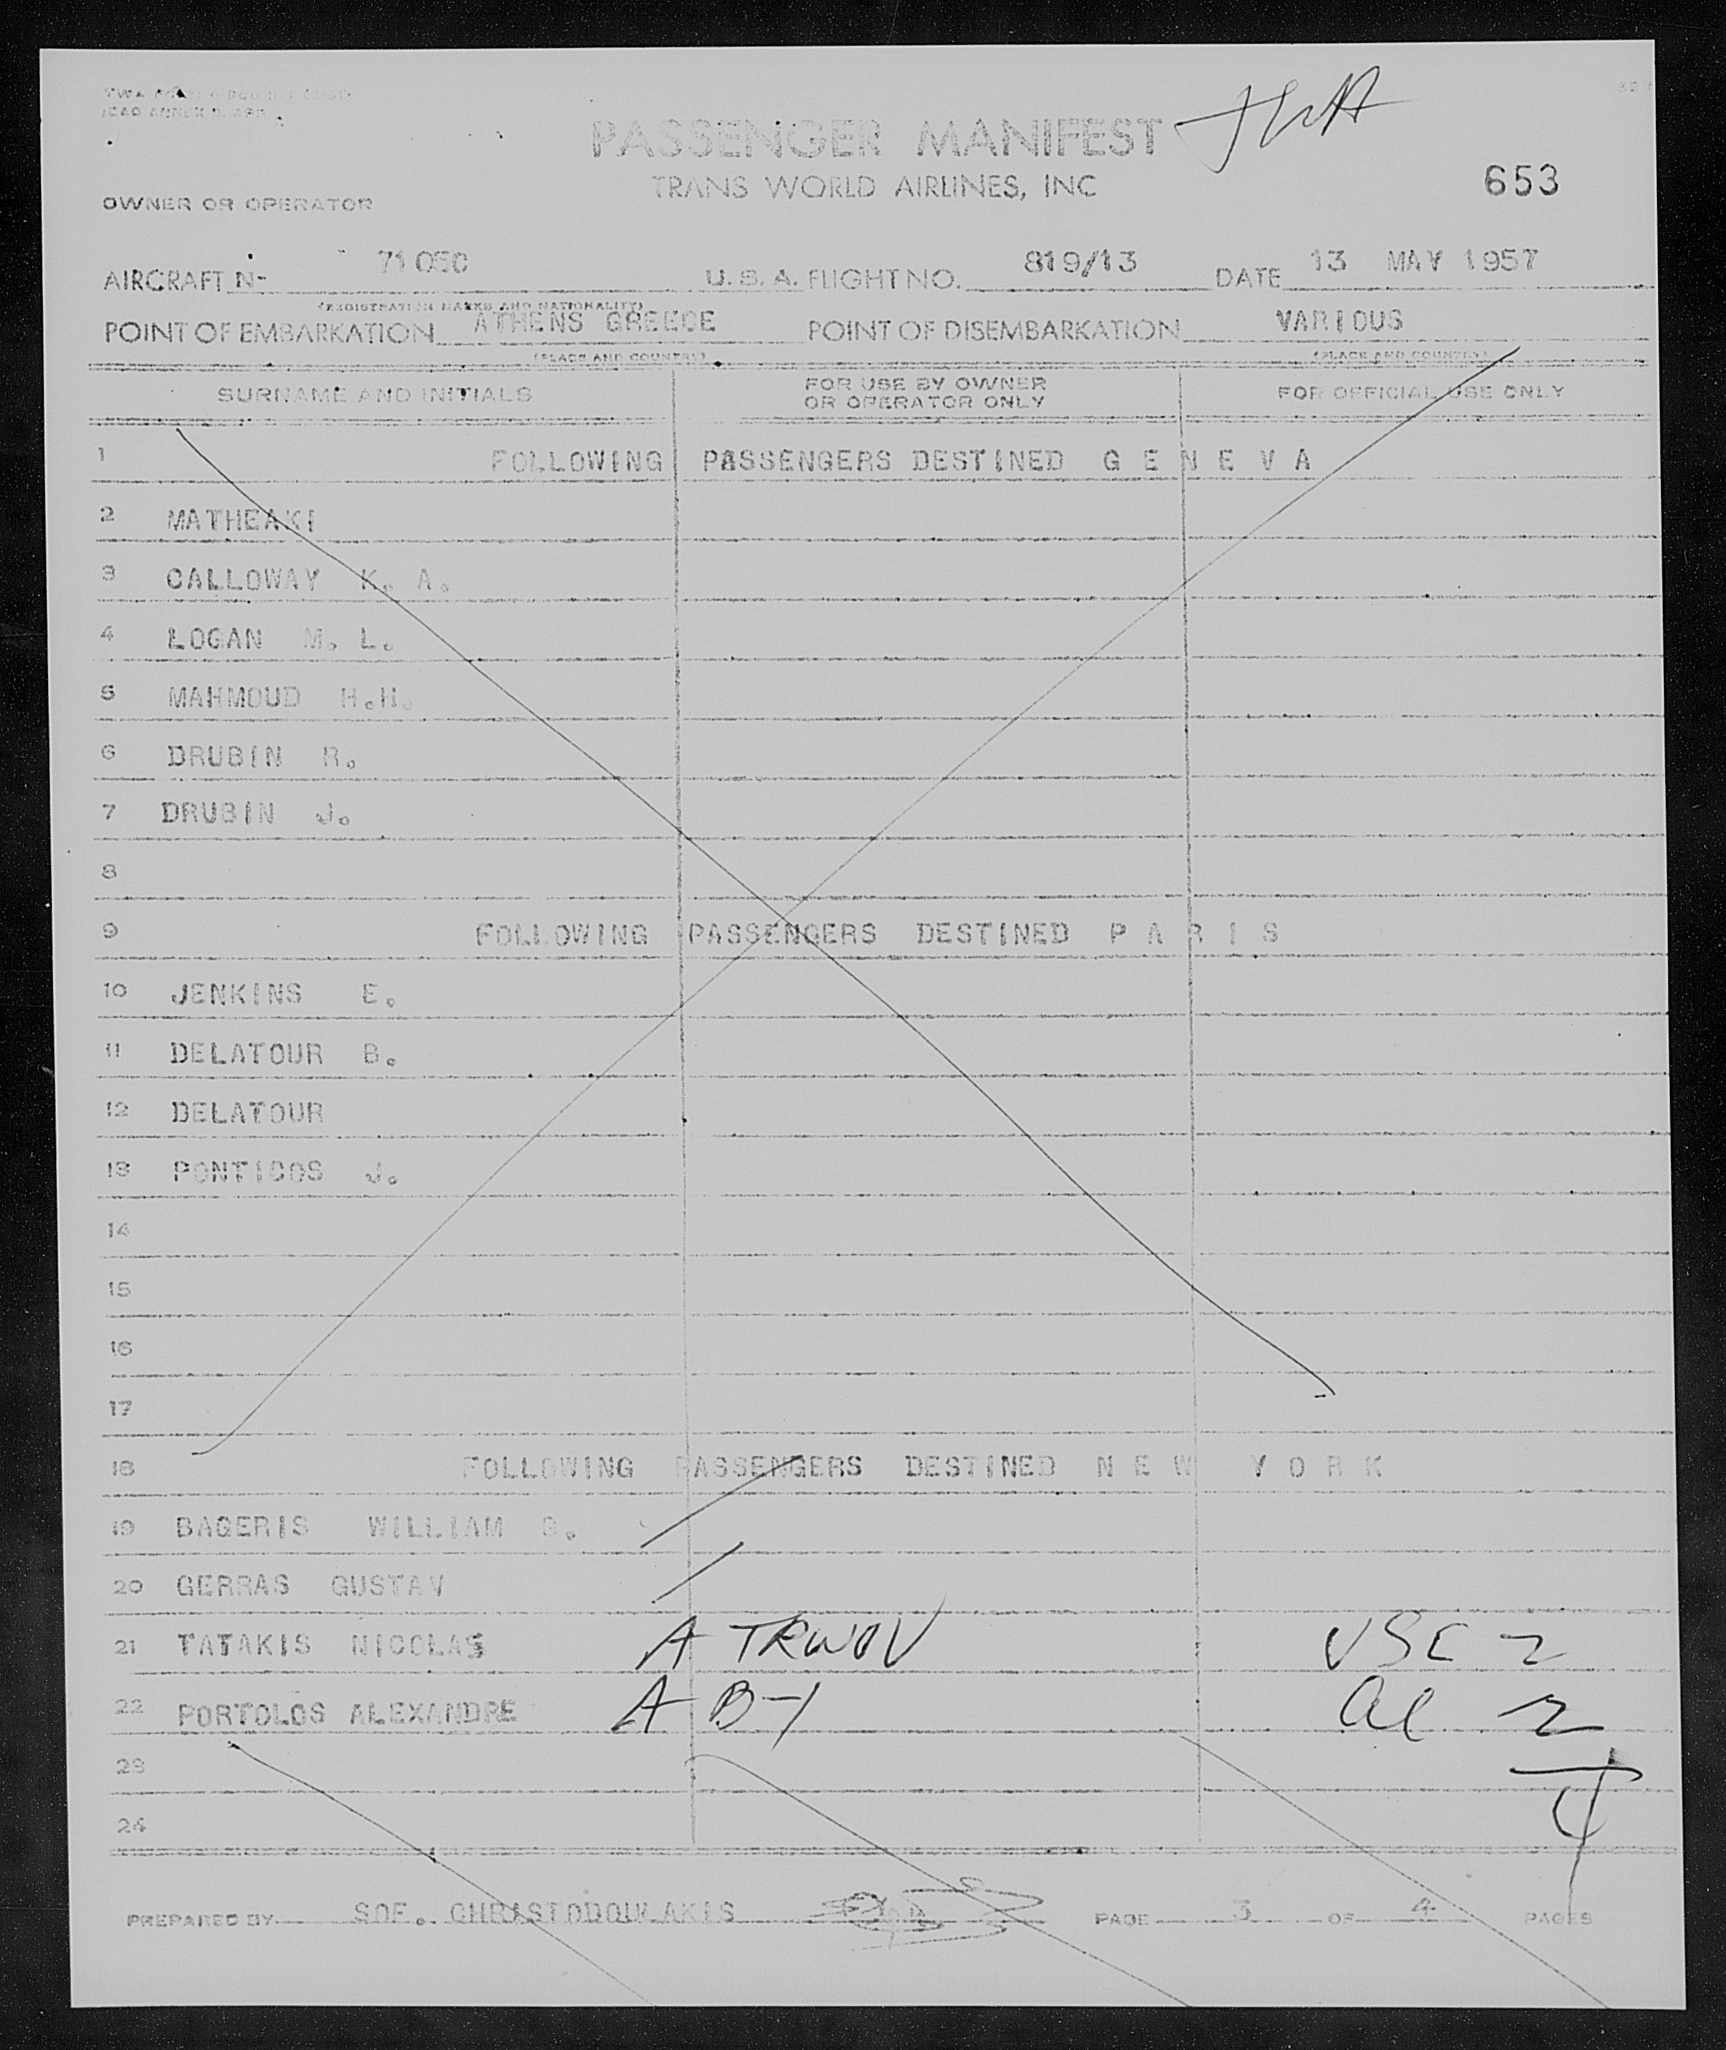 PASSENGER MANIFEST TWA
TRANS WORLD AIRLINES, INC
653
OWNER OR OPERATOR
AIRCRAFT N- 7105C U. S. A. FLIGHT NO. 819/13 DATE 13 MAY 1957
(REGISTRATION MARKS AND NATIONALITY)
POINT OF EMBARKATION ATHENS GREECE POINT OF DISEMBARKATION VARIOUS
(PLACE AND COUNTRY) (PLACE AND COUNTRY)
SURNAME AND INITIALS FOR USE BY OWNER OR OPERATOR ONLY FOR OFFICIAL USE ONLY
1 FOLLOWING PASSENGERS DESTINED G E N E V A
2 MATHEAKI
3 CALLOWAY K. A.
4 LOGAN M. L.
5 MAHMOUD H.H.
6 DRUBIN R.
7 DRUBIN J.
8
9 FOLLOWING PASSENGERS DESTINED P A R I S
10 JENKINS E.
11 DELATOUR B.
12 DELATOUR
13 PONTICOS J.
14
15
16
17
18 FOLLOWING PASSENGERS DESTINED N E W Y O R K
19 BAGERIS WILLIAM G.
20 GERRAS GUSTAV
21 TATAKIS NICOLAS A TRWOV USC 2
22 PORTOLOS ALEXANDRE A B-1 al 2
23 4
24
PREPARED BY SOF. CHRISTODOULAKIS PAGE 3 OF 4 PAGES